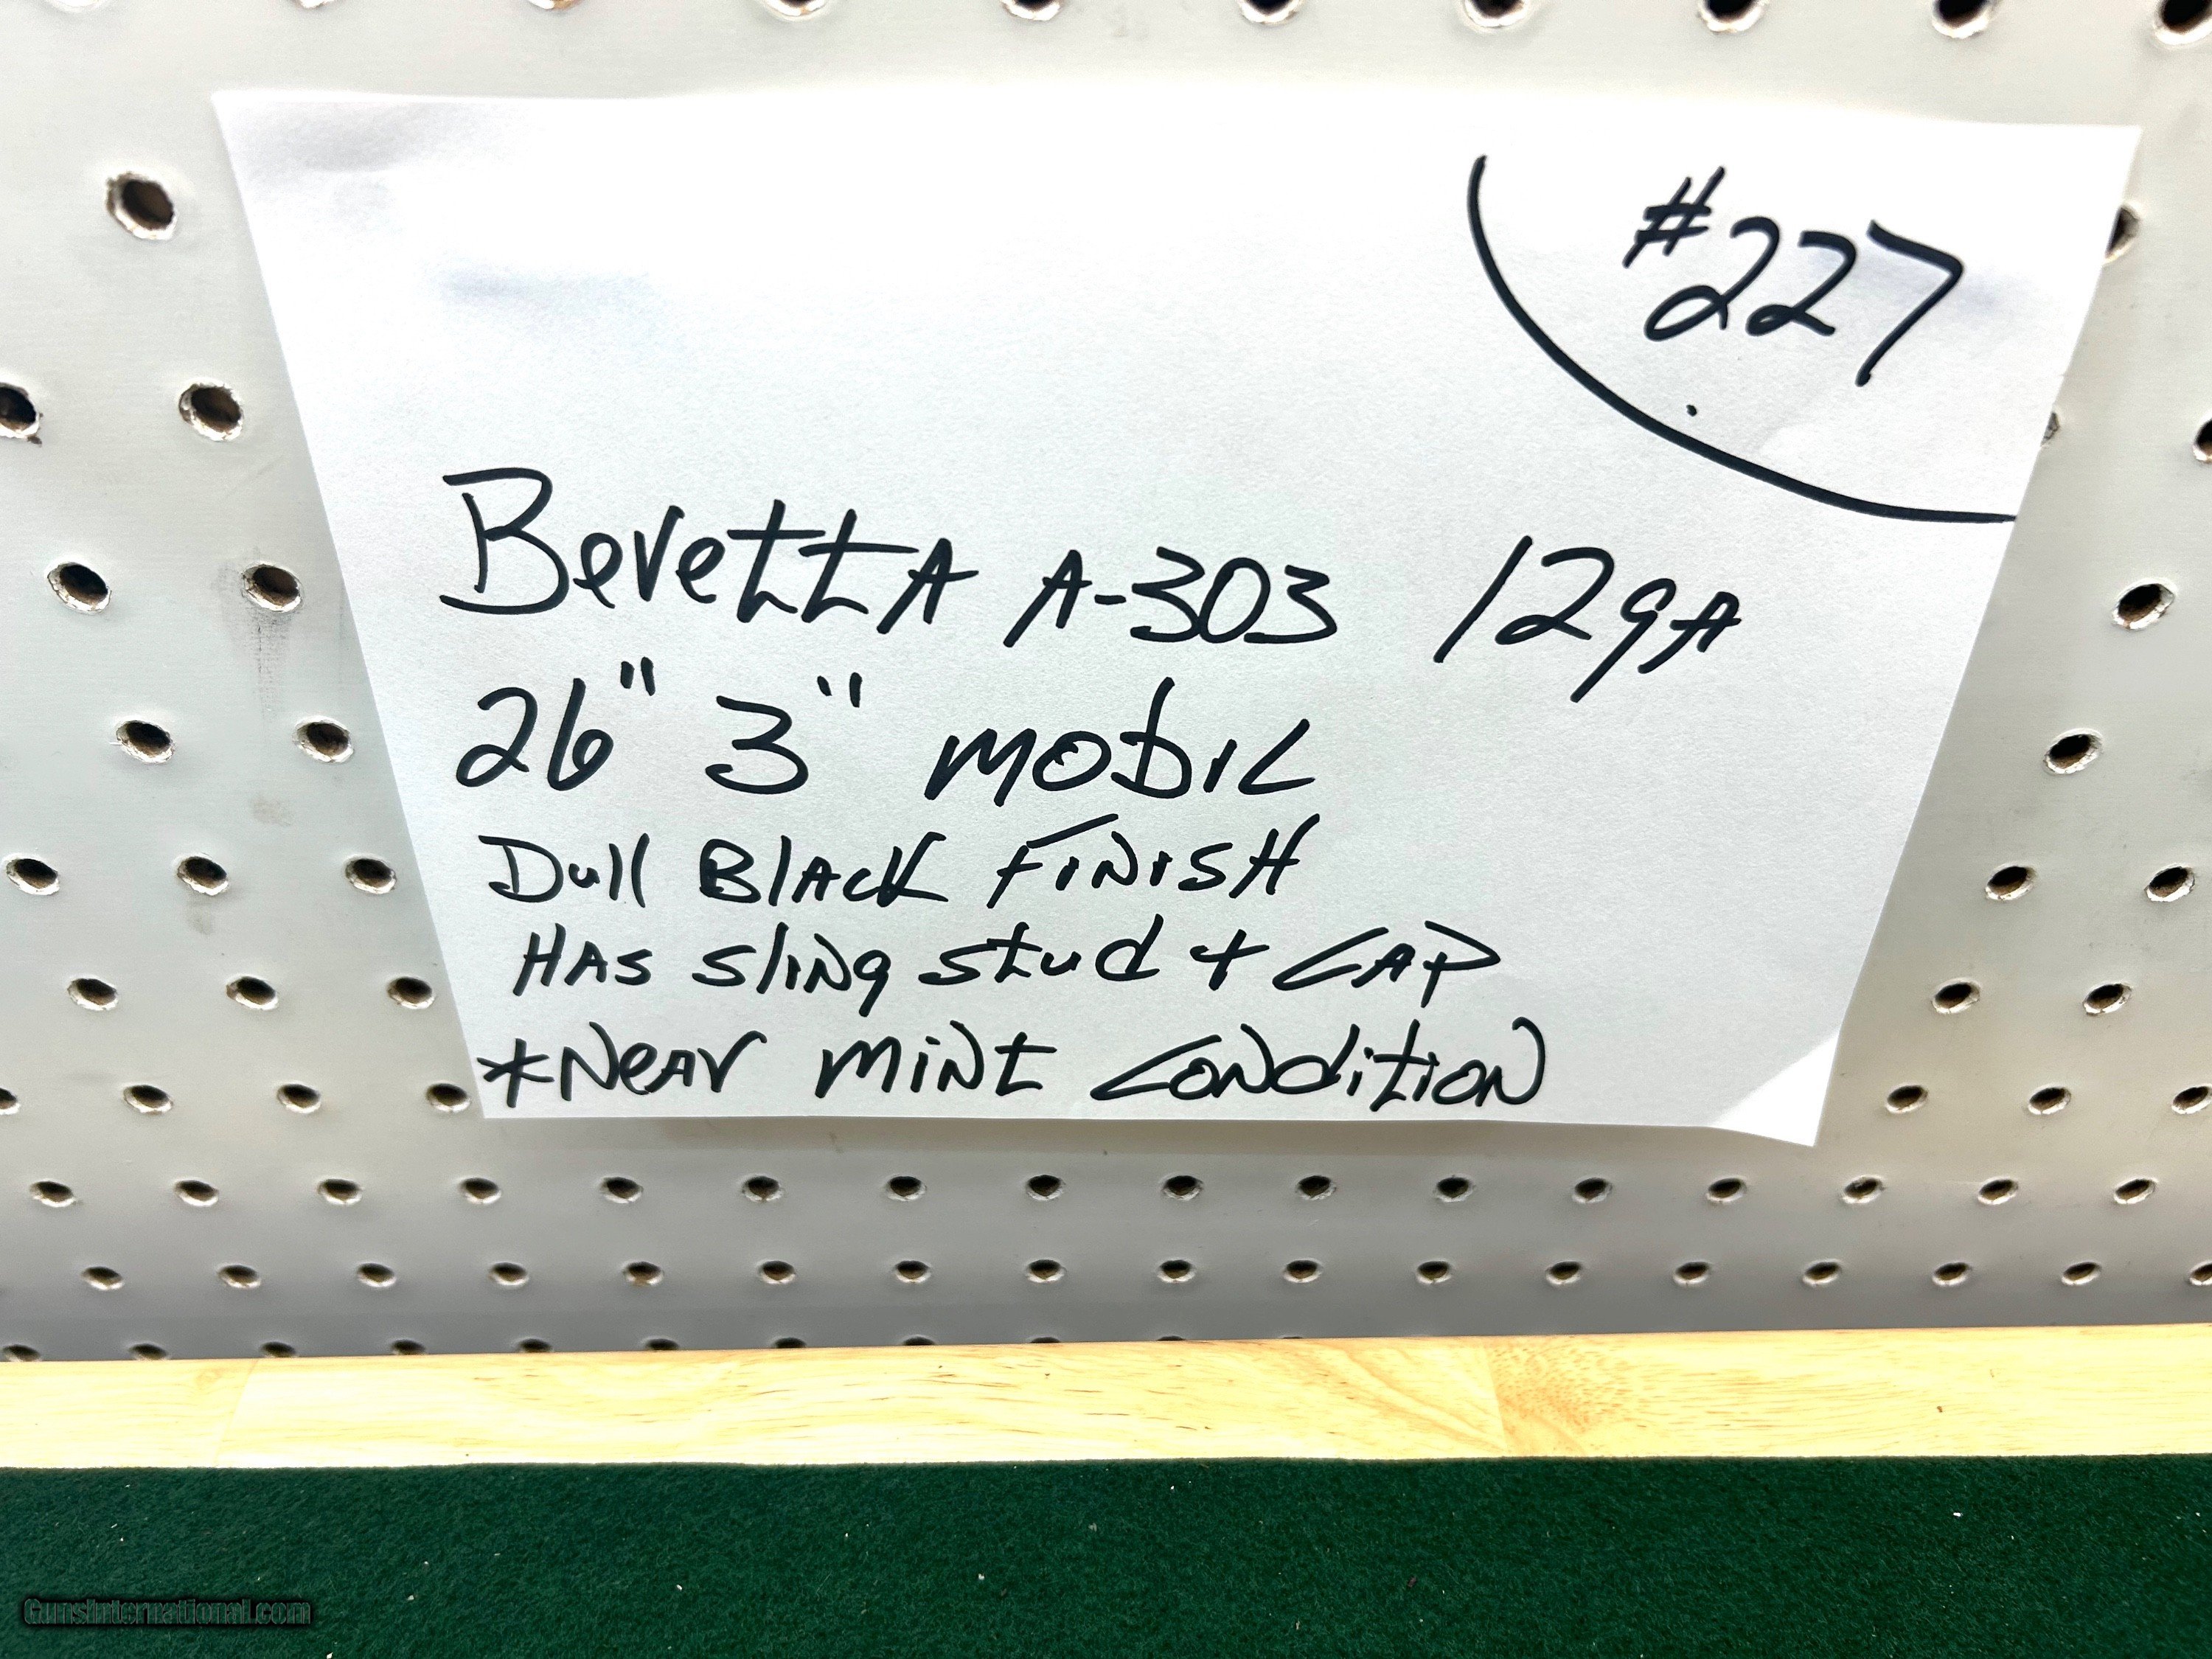 #227
Beretta A-303 12gA
26" 3" mobil
Dull Black Finish
Has sling stud + CAP
*Near mint condition
GunsInternational.com